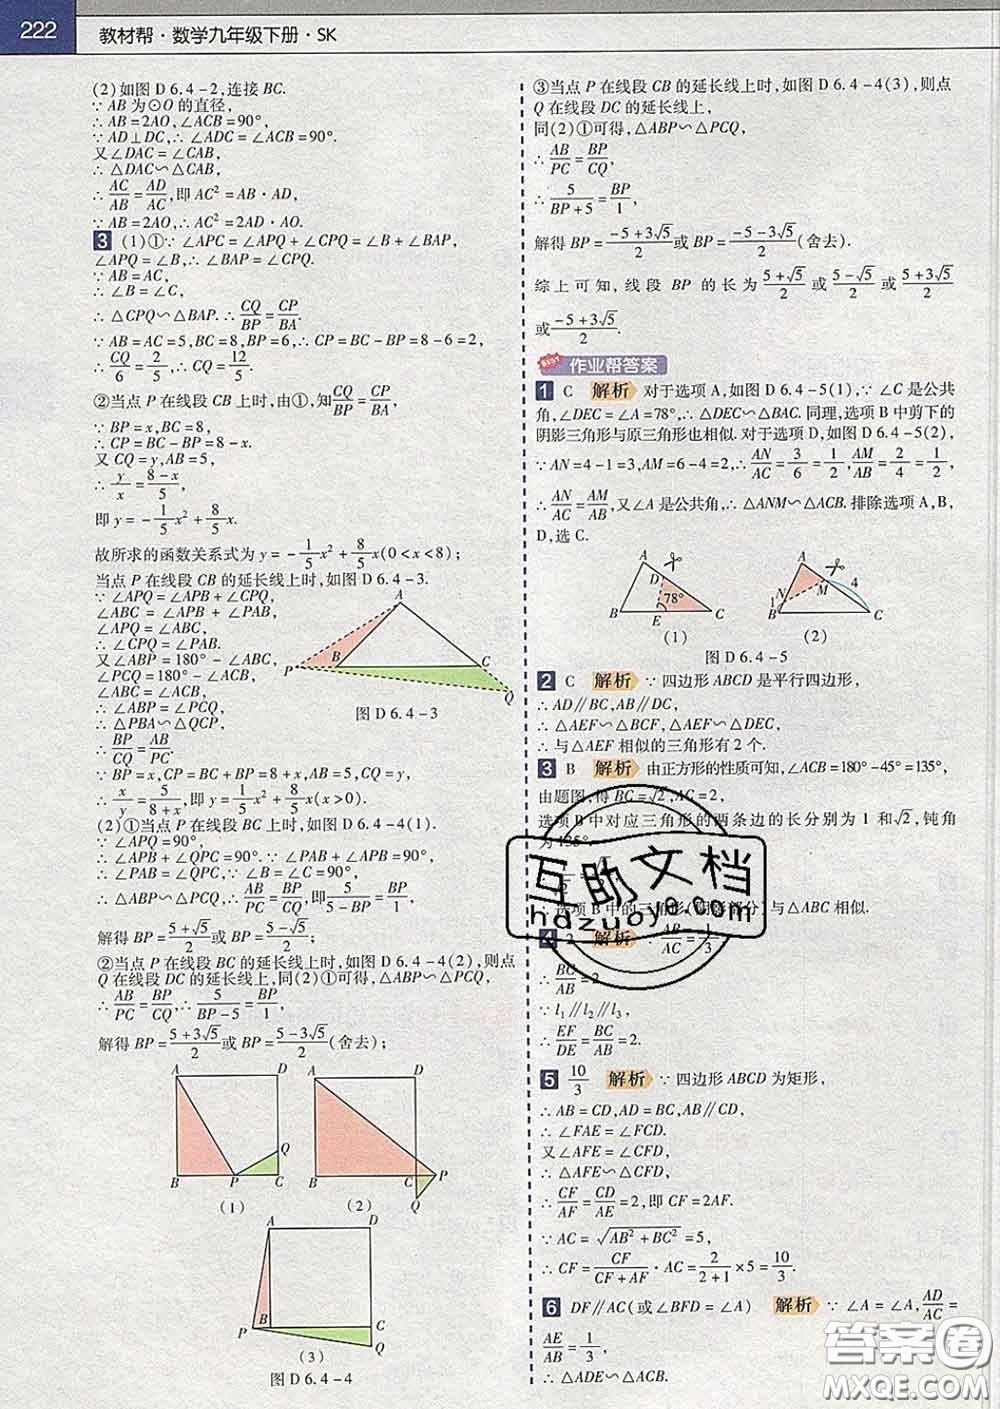 222 教材帮·数学九年级下册·SK
(2)如图 D 6.4-2,连接 BC.
∵ AB 为⊙O 的直径,
∴ AB=2AO,∠ACB=90°.
∵ AD⊥DC,∴ ∠ADC=∠ACB=90°.
又∠DAC=∠CAB,
∴ △DAC∽△CAB,
∴ AC/AB=AD/AC,即 AC²=AB·AD,
∵ AB=2AO,∴ AC²=2AD·AO.
3 (1)①∵ ∠APC=∠APQ+∠CPQ=∠B+∠BAP,
∠APQ=∠B,∴ ∠BAP=∠CPQ.
∵ AB=AC,
∴ ∠B=∠C,
∴ △CPQ∽△BAP.∴ CQ/BP=CP/BA.
∵ AB=AC=5,BC=8,BP=6,∴ CP=BC-BP=8-6=2,
∴ CQ/6=2/5,∴ CQ=12/5.
②当点 P 在线段 CB 上时,由①,知CQ/BP=CP/BA,
∵ BP=x,BC=8,
∴ CP=BC-BP=8-x.
又 CQ=y,AB=5,
∴ y/x=(8-x)/5,
即 y=-1/5x²+8/5x.
故所求的函数关系式为 y=-1/5x²+8/5x(0<x<8);
当点 P 在线段 CB 的延长线上时,如图 D 6.4-3.
∵ ∠APQ=∠APB+∠CPQ,
∠ABC=∠APB+∠PAB,
∠APQ=∠ABC,
∴ ∠CPQ=∠PAB.
又∠ABP=180°-∠ABC,
∠PCQ=180°-∠ACB,
∠ABC=∠ACB,
∴ ∠ABP=∠PCQ,
∴ △PBA∽△QCP,
∴ BP/CQ=AB/PC.
A
P B C
Q
图 D 6.4-3
∵ BP=x,CP=BC+BP=8+x,AB=5,CQ=y,
∴ x/y=5/(8+x),即 y=1/5x²+8/5x(x>0).
(2)①当点 P 在线段 BC 上时,如图 D 6.4-4(1).
∵ ∠APQ=90°,
∴ ∠APB+∠QPC=90°.∵ ∠PAB+∠APB=90°,
∴ ∠PAB=∠QPC,∵ ∠B=∠C=90°,
∴ △ABP∽△PCQ,∴ AB/PC=BP/CQ,即5/(5-BP)=BP/1,
解得 BP=(5+√5)/2或 BP=(5-√5)/2;
②当点 P 在线段 BC 的延长线上时,如图 D 6.4-4(2),则点
Q 在线段 DC 的延长线上,同(2)①可得,△ABP∽△PCQ,
∴ AB/PC=BP/CQ,∴ 5/(BP-5)=BP/1,
解得 BP=(5+3√5)/2或 BP=(5-3√5)/2(舍去);
A D A D
Q
B P C B C P
Q
(1) (2)
A D
P B C
Q
(3)
图 D 6.4-4
③当点 P 在线段 CB 的延长线上时,如图 D 6.4-4(3),则点
Q 在线段 DC 的延长线上,
同(2)①可得,△ABP∽△PCQ,
∴ AB/PC=BP/CQ,
∴ 5/(BP+5)=BP/1,
解得 BP=(-5+3√5)/2或 BP=(-5-3√5)/2(舍去).
综上可知,线段 BP 的长为(5+√5)/2或(5-√5)/2或(5+3√5)/2
或(-5+3√5)/2.
作业帮答案
1 C 解析 对于选项 A,如图 D 6.4-5(1),∵ ∠C 是公共
角,∠DEC=∠A=78°,∴ △DEC∽△BAC.同理,选项 B 中剪下的
阴影三角形与原三角形也相似.对于选项 D,如图 D 6.4-5(2),
∵ AN=4-1=3,AM=6-4=2,∴ AN/AC=3/6=1/2,AM/AB=2/4=1/2,
∴ AN/AC=AM/AB,又∠A 是公共角,∴ △ANM∽△ACB.排除选项 A,B,
D,选 C.
A D 78° B E C
(1)
A 4 M 1 N B C
(2)
图 D 6.4-5
2 C 解析 ∵ 四边形 ABCD 是平行四边形,
∴ AD∥BC,AB∥DC,
∴ △AEF∽△BCF,△AEF∽△DEC,
∴ 与△AEF 相似的三角形有 2 个.
3 B 解析 由正方形的性质可知,∠ACB=180°-45°=135°,
由题图,得 BC=√2,AC=2,
选项 B 中对应三角形的两条边的长分别为 1 和√2,钝角
为 135°.
∴ 选项 B 中的三角形(阴影部分)与△ABC 相似.
4 2 解析 ∵ AB/AC=1/3,
∴ BC/AB=2.
∵ l₁∥l₂∥l₃,
∴ EF/DE=BC/AB=2.
5 10/3 解析 ∵ 四边形 ABCD 为矩形,
∴ AB=CD,AD=BC,AB∥CD,
∴ ∠FAE=∠FCD.
又∠AFE=∠CFD,
∴ △AFE∽△CFD,
∴ CF/AF=CD/AE=2,即 CF=2AF.
∵ AC=√(AB²+BC²)=5,
∴ CF=CF/(CF+AF)·AC=2/(2+1)×5=10/3.
6 DF∥AC(或∠BFD=∠A) 解析 ∵ ∠A=∠A,AD/AC=
AE/AB=1/3,
∴ △ADE∽△ACB.
互助文档
hdzuoye.com
答案圈
MXQE.COM